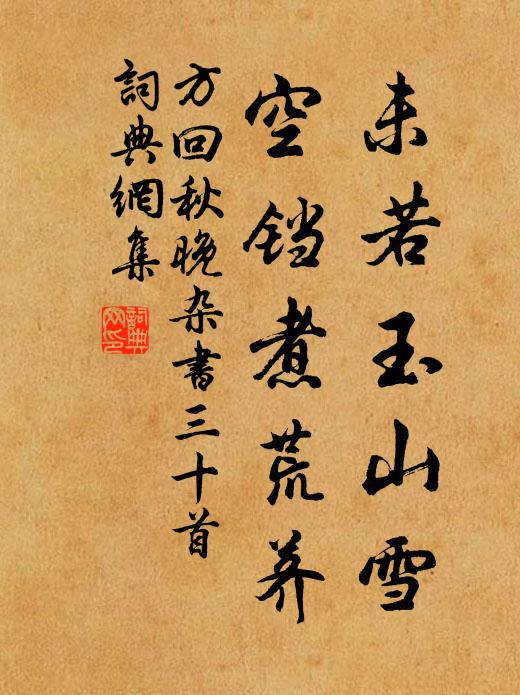 未若玉山雪
空铛煮荒荞
方回秋晚杂书三十首
詞典網集
詞典
网印